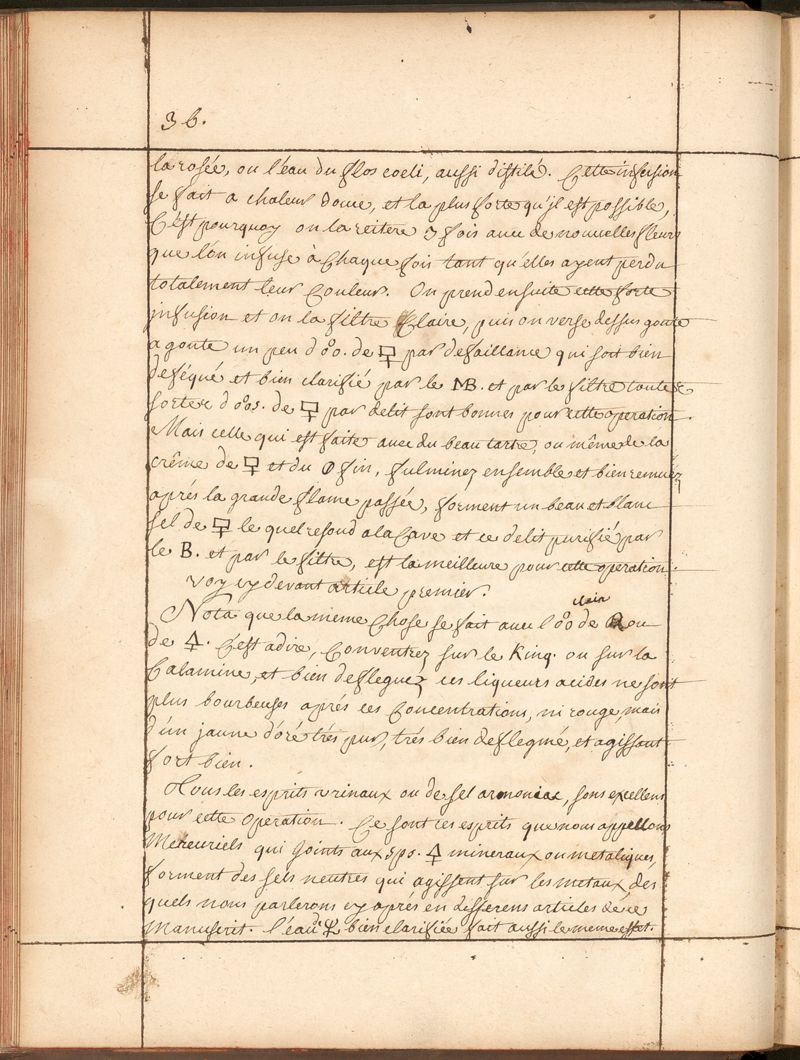 36.
la rosée, ou l'éau du flos coeli, aussi distilé. Cette infusion
se fait a chaleur douce, et la plus forte qu'jl est possible,
C'est pourquoy on la reitere 3 fois avec de nouvelles fleurs
que l'on infuse à Chaque fois tant qu'elles ayent perdu
totalement leur Couleur. On prend ensuite cette forte
jnfusion et on la filtre Claire, puis on verse dessus goute
a goute un peu d'oo. de 🜿 par defaillance qui soit bien
deféqué et bien clarifié par le MB. et par le filtre toutes
sortes d'oos. de 🜿 par delit sont bonnes pour cette operation.
Mais celle qui est faite avec du beau tartre, ou même de la
crême de 🜿 et du 🜕 fin, fulminez ensemble et bien remuez
aprés la grande flame passée, forment un beau et blanc
sel de 🜿 le quel resoud a la Cave et ce delit purifié par
le B. et par le filtre, est la meilleure pour cette operation.
voy cy devant article premier.
Nota que la même Chose se fait avec l'oo de ou
clair
de 🜍. C'est adire, Conventrez sur le King. ou sur la
Calamine, et bien deflegmez ces liqueurs acides ne sont
plus bourbeuses aprés ces Concentrations, ni rouge, mais
d'un jaune d'oré trés pur, trés bien deflegmé, et agissant
fort bien.
Tous les esprits vrinaux ou de sel armoniac, sons excellens
pour cette operation. Ce sont ces esprits que nous appellons
Mercuriels qui Joints aux sps. 🜍 mineraux ou metaliques,
forment des sels neutres qui agissent sur les metaux des
quels nous parlerons cy aprés en differens articles de ce
Manuscrit. l'eau d' bien clarifiée fait aussi le meme effet.